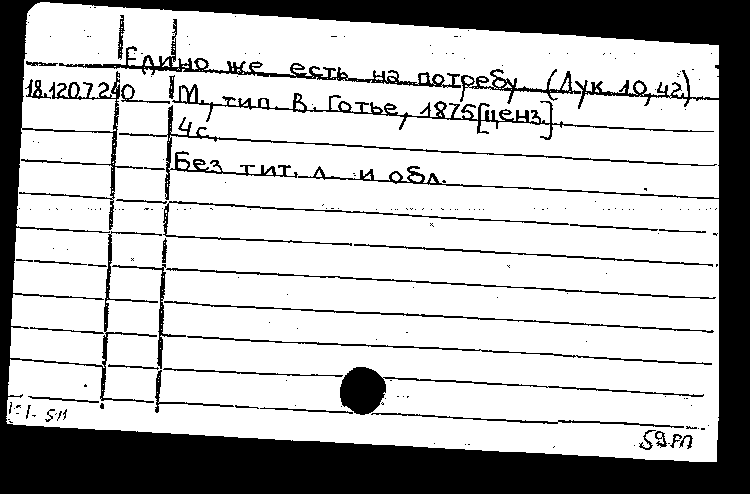 Едино же есть на потребу. (Лук. 10, 42.)
18.120.7.240 М., тип. В. Готье, 1875 [ценз.].
4 с.
Без тит. л. и обл.
59РП